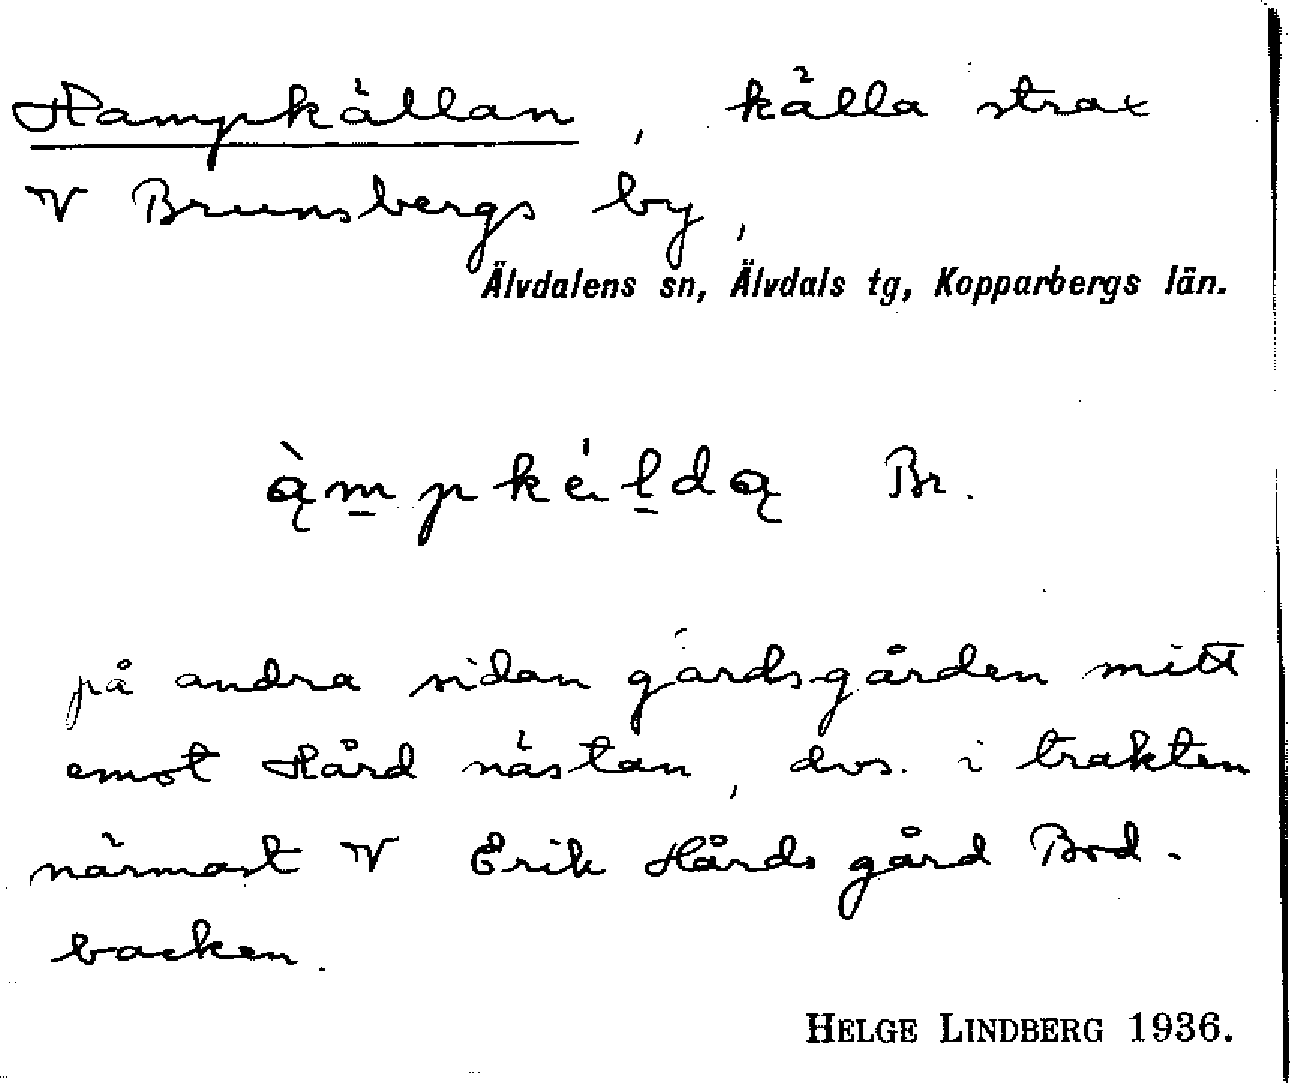 Hampkällan, källa strax
V Brunsbergs by,
Älvdalens sn, Älvdals tg, Kopparbergs län.
ą̀m̲pkél̲dą Br.
på andra sidan gärdsgården mitt
emot Hård nästan, dvs. i trakten
närmast V Erik Hårds gård Bod-
backen.
HELGE LINDBERG 1936.